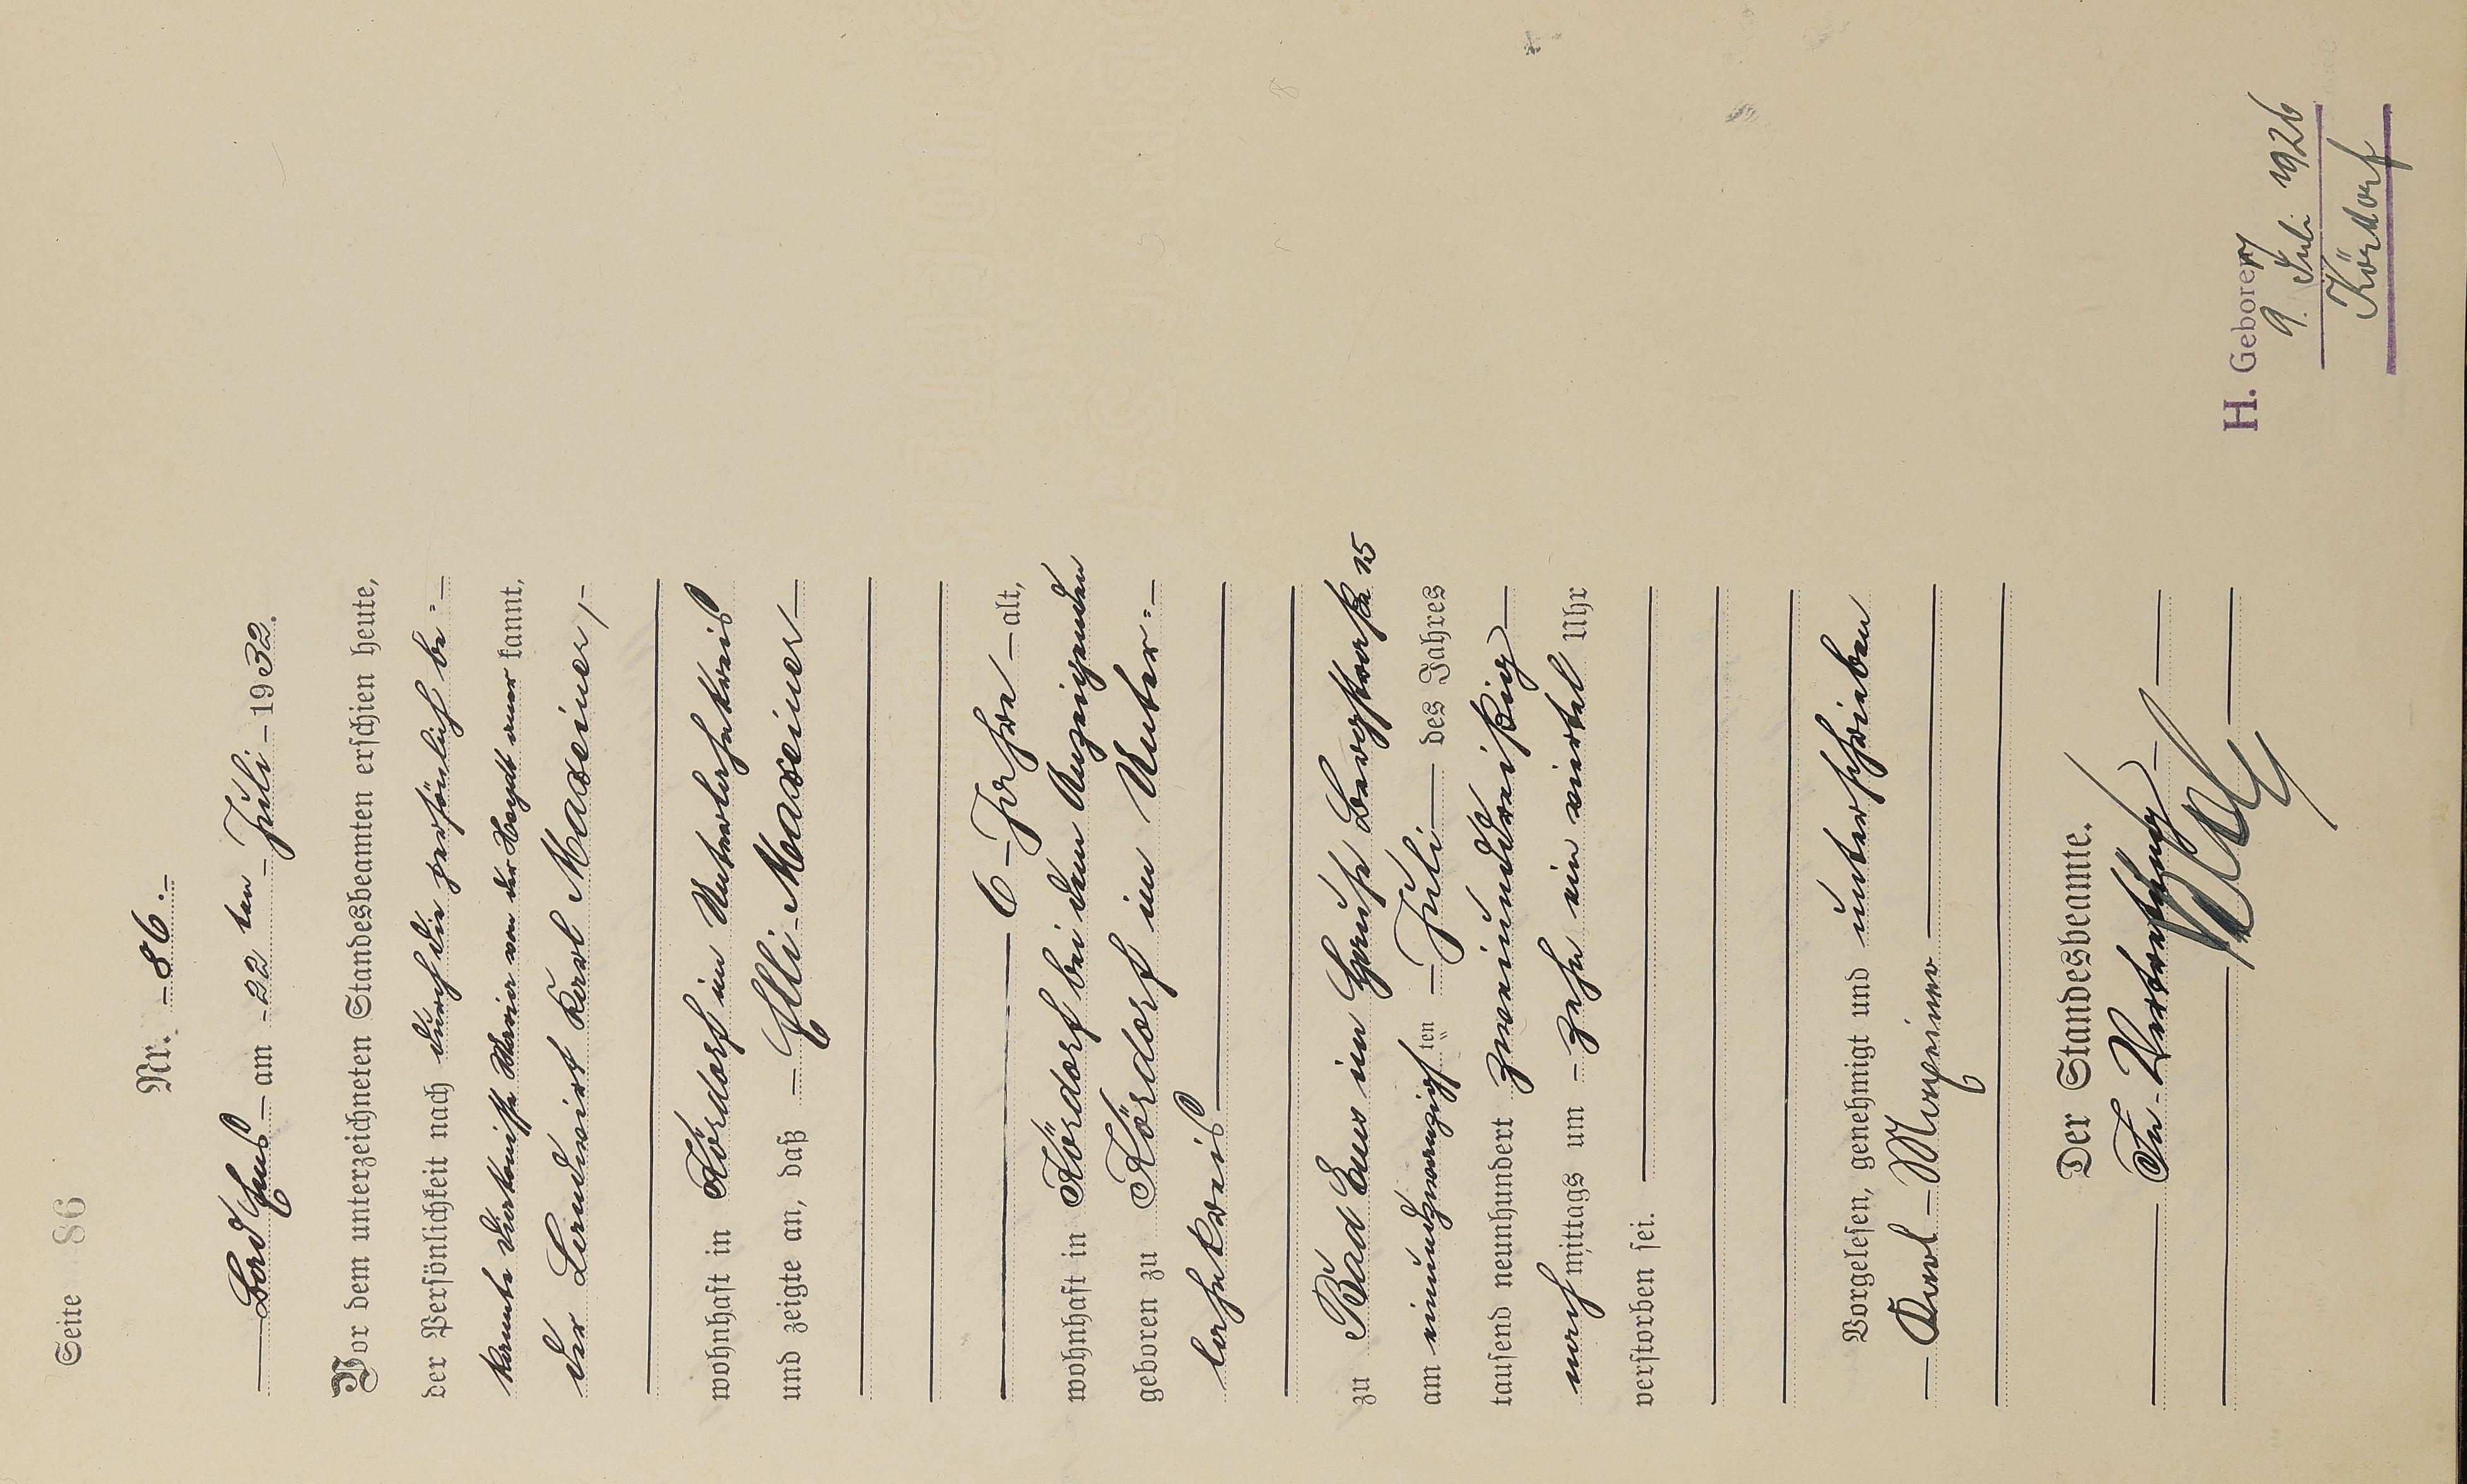 Seite 86
Nr. 86.
Bad Ems am 22 ten Juli 1932.
Vor dem unterzeichneten Standesbeamten erschien heute,
der Persönlichkeit nach durch die persönlich be=
kannte Diakonisse von der kannt,
der Landwirt Karl Maxeiner,
wohnhaft in Kördorf im Unterlahnkreis
und zeigte an, daß Elli Maxeiner
6 Jahre alt,
wohnhaft in Kördorf bei dem Anzeigenden
geboren zu Kördorf im Unter=
lahnkreis
zu Bad Ems im Hause Bergstraße 25
am einundzwanzigsten ten Juli des Jahres
tausend neunhundert zweiunddreißig
nachmittags um zehn ein viertel Uhr
verstorben sei.
Vorgelesen, genehmigt und unterschrieben
Karl Maxeiner
Der Standesbeamte.
In Vertretung
H. Geboren
9. Juli 1926
Kördorf